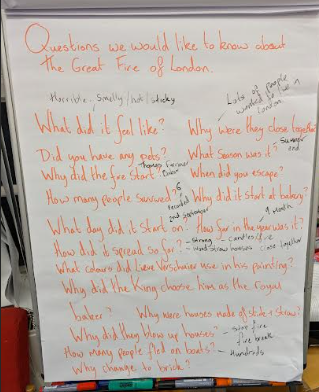 Questions we would like to know about
the Great Fire of London.
Horrible, Smelly / hot / sticky
Lots of people
wanted to live in
London
What did it feel like?
Why were they close together
Did you have any pets?
What Season was it?
Summer
end
Why did the fire start?
Thomas Farriner
Baker
When did you escape?
How many people survived?
6
recorded
Why did it start at bakery?
What day did it start on?
2nd September
How far in the year was it?
9 Month
How did it spread so far?
- strong
- candles/live
- Wood straw houses close together
What colours did Lieve Verschuier use in his painting?
Why did the King choose him as the royal
baker?
Why were houses made of stick + straw?
Why did they blow up houses?
- fire
fire break
How many people fled on boats?
- Hundreds
Why change to brick?